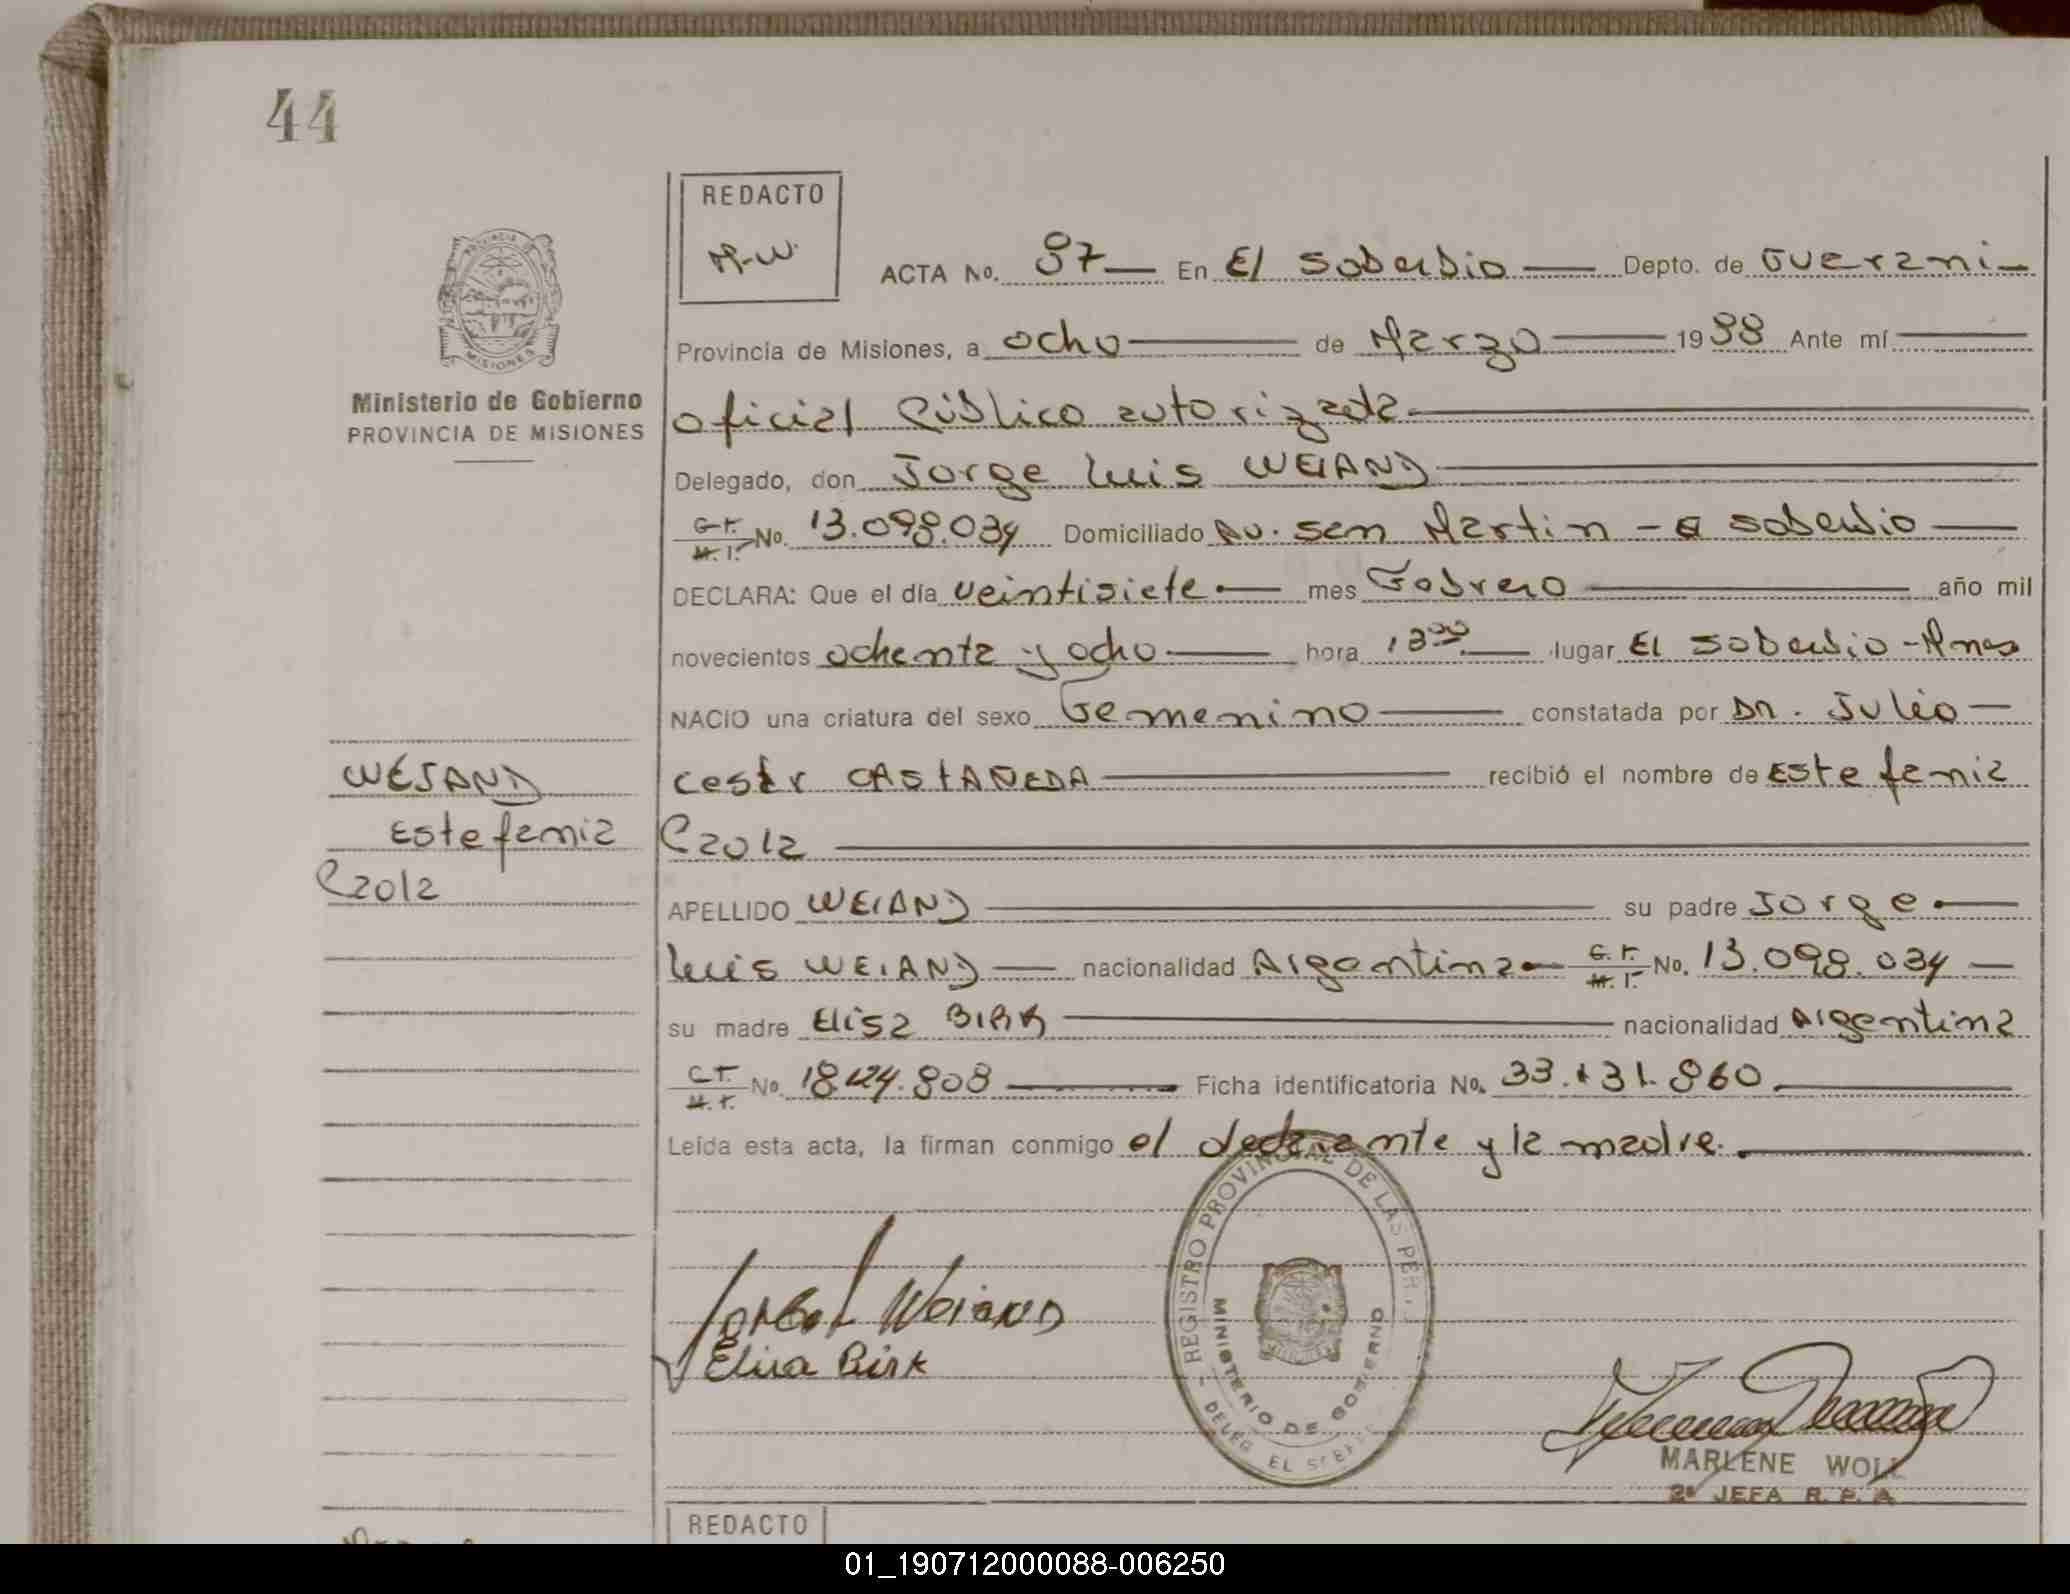 44
REDACTO
M-W.
ACTA No. 87 En El Soberbio Depto. de Guarani
Provincia de Misiones, a ocho de Marzo 1988 Ante mí
oficial Público autorizada
PROVINCIA DE
MISIONES
Ministerio de Gobierno
PROVINCIA DE MISIONES
Delegado, don Jorge Luis WEIAND
No. 13.098.034 Domiciliado Av. San Martin - El Soberbio
DECLARA: Que el día veintisiete mes Febrero año mil
novecientos ochenta y ocho hora lugar El Soberbio - Mnes
NACIO una criatura del sexo Femenino constatada por Dr. Julio
Cesar CASTAÑEDA recibió el nombre de Estefania
Paola
WEIAND
Estefania
Paola
APELLIDO WEIAND su padre Jorge
Luis WEIAND nacionalidad Argentina No. 13.098.034
su madre Elisa BIRK nacionalidad Argentina
No. 18.124.808 Ficha identificatoria No. 33.131.860
Leída esta acta, la firman conmigo el declarante y la madre.
Weiand
Elisa Birk
REGISTRO PROVINCIAL DE LAS PER
MINISTERIO DE GOBIERNO
DELEG EL
MARLENE WOLL
2ª JEFA R. P. A
REDACTO
01_190712000088-006250